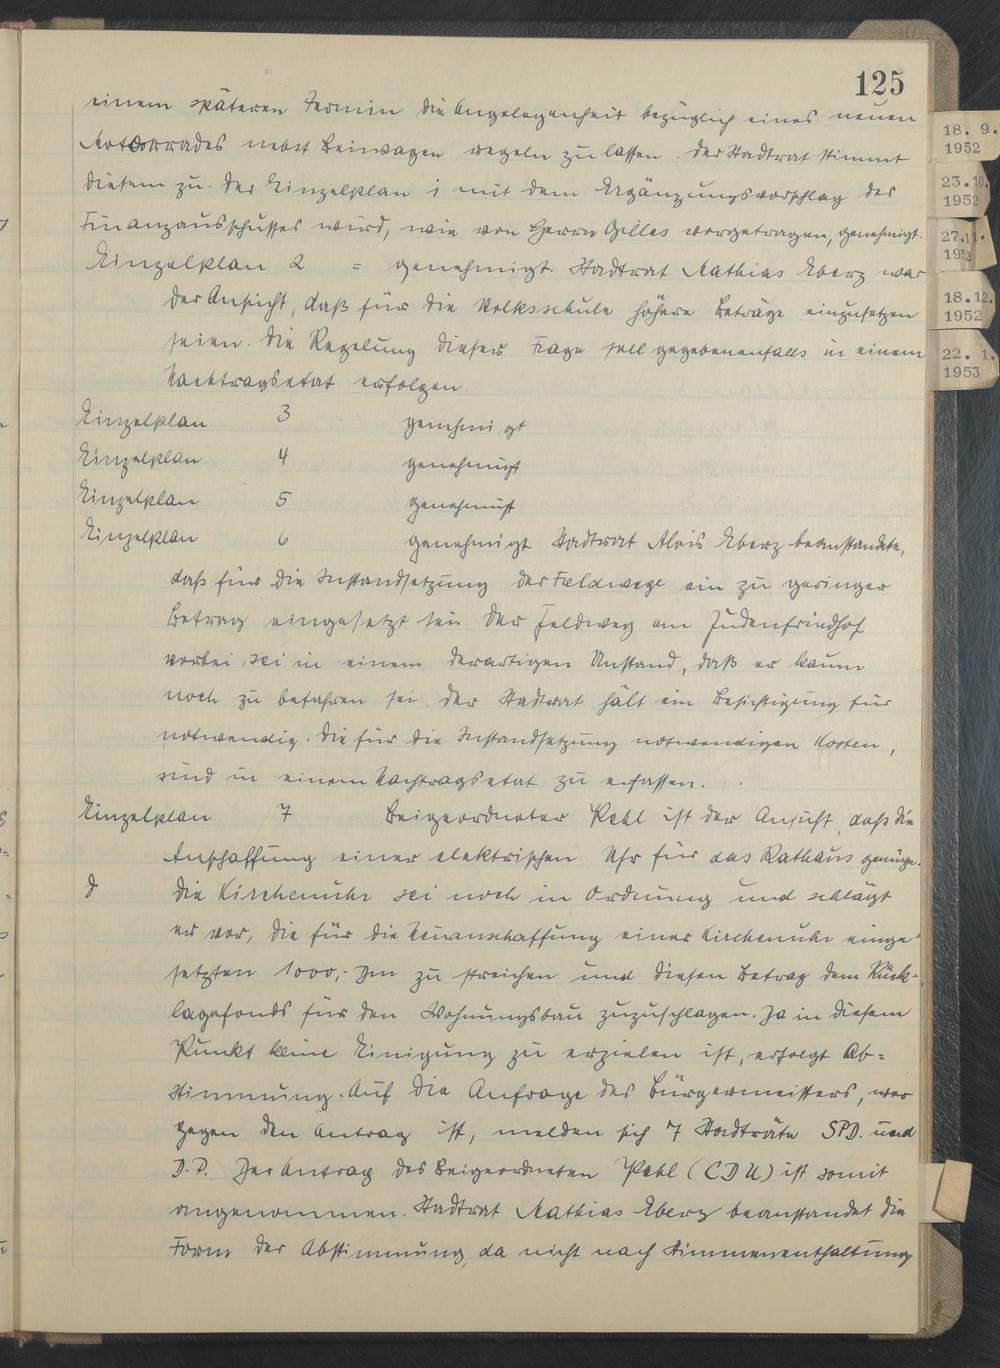 125
einem späteren Termin die Angelegenheit bezüglich eines neuen
Motorrades nebst Beiwagen regeln zu lassen. Der Stadtrat stimmt
diesem zu. Der Einzelplan 1 mit dem Ergänzungsvorschlag des
Finanzausschusses wird, wie von Herrn Gilles vorgetragen, genehmigt.
Einzelplan 2 = genehmigt. Stadtrat Mathias Eberz war
der Ansicht, daß für die Volksschule höhere Beträge einzusetzen
seien. Die Regelung dieser Frage soll gegebenenfalls in einem
Nachtragsetat erfolgen.
Einzelplan 3 genehmigt
Einzelplan 4 genehmigt
Einzelplan 5 genehmigt
Einzelplan 6 genehmigt. Stadtrat Alois Eberz beanstandete,
daß für die Instandsetzung der Feldwege ein zu geringer
Betrag eingesetzt sei. Der Feldweg am Judenfriedhof
vorbei, sei in einem derartigen Zustand, daß er kaum
noch zu befahren sei. Der Stadtrat hält ein Besichtigung für
notwendig. Die für die Instandsetzung notwendigen Kosten,
sind in einem Nachtragsetat zu erfassen.
Einzelplan 7 Beigeordneter Pehl ist der Ansicht, daß die
Anschaffung einer elektrischen Uhr für das Rathaus genüge.
Die Kirchenuhr sei noch in Ordnung und schlägt
er vor, die für die Neuanschaffung einer Kirchenuhr einge=
setzten 1000,- DM zu streichen und diesen Betrag dem Rück-
lagefonds für den Wohnungsbau zuzuschlagen. Da in diesem
Punkt keine Einigung zu erzielen ist, erfolgt Ab=
stimmung. Auf die Anfrage des Bürgermeisters, wer
gegen den Antrag ist, melden sich 7 Stadträte SPD. und
D.P. Der Antrag des Beigeordneten Pehl (CDU) ist somit
angenommen. Stadtrat Mathias Eberz beanstandet die
Form der Abstimmung, da nicht nach Stimmenenthaltung
18. 9.
1952
23.10.
1952
27.11.
1952
18.12.
1952
22. 1.
1953